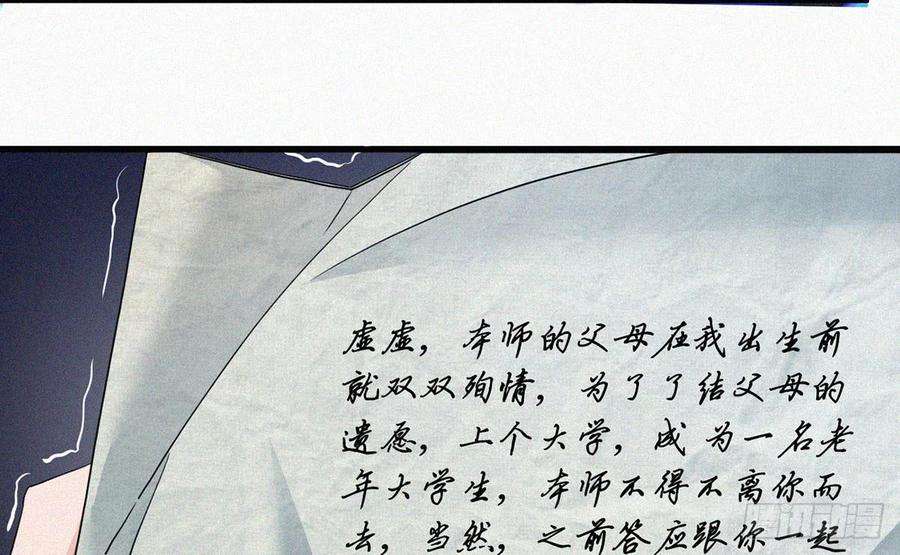 虚虚，本师的父母在我出生前
就双双殉情，为了了结父母的
遗愿，上个大学，成为一名老
年大学生，本师不得不离你而
去，当然，之前答应跟你一起